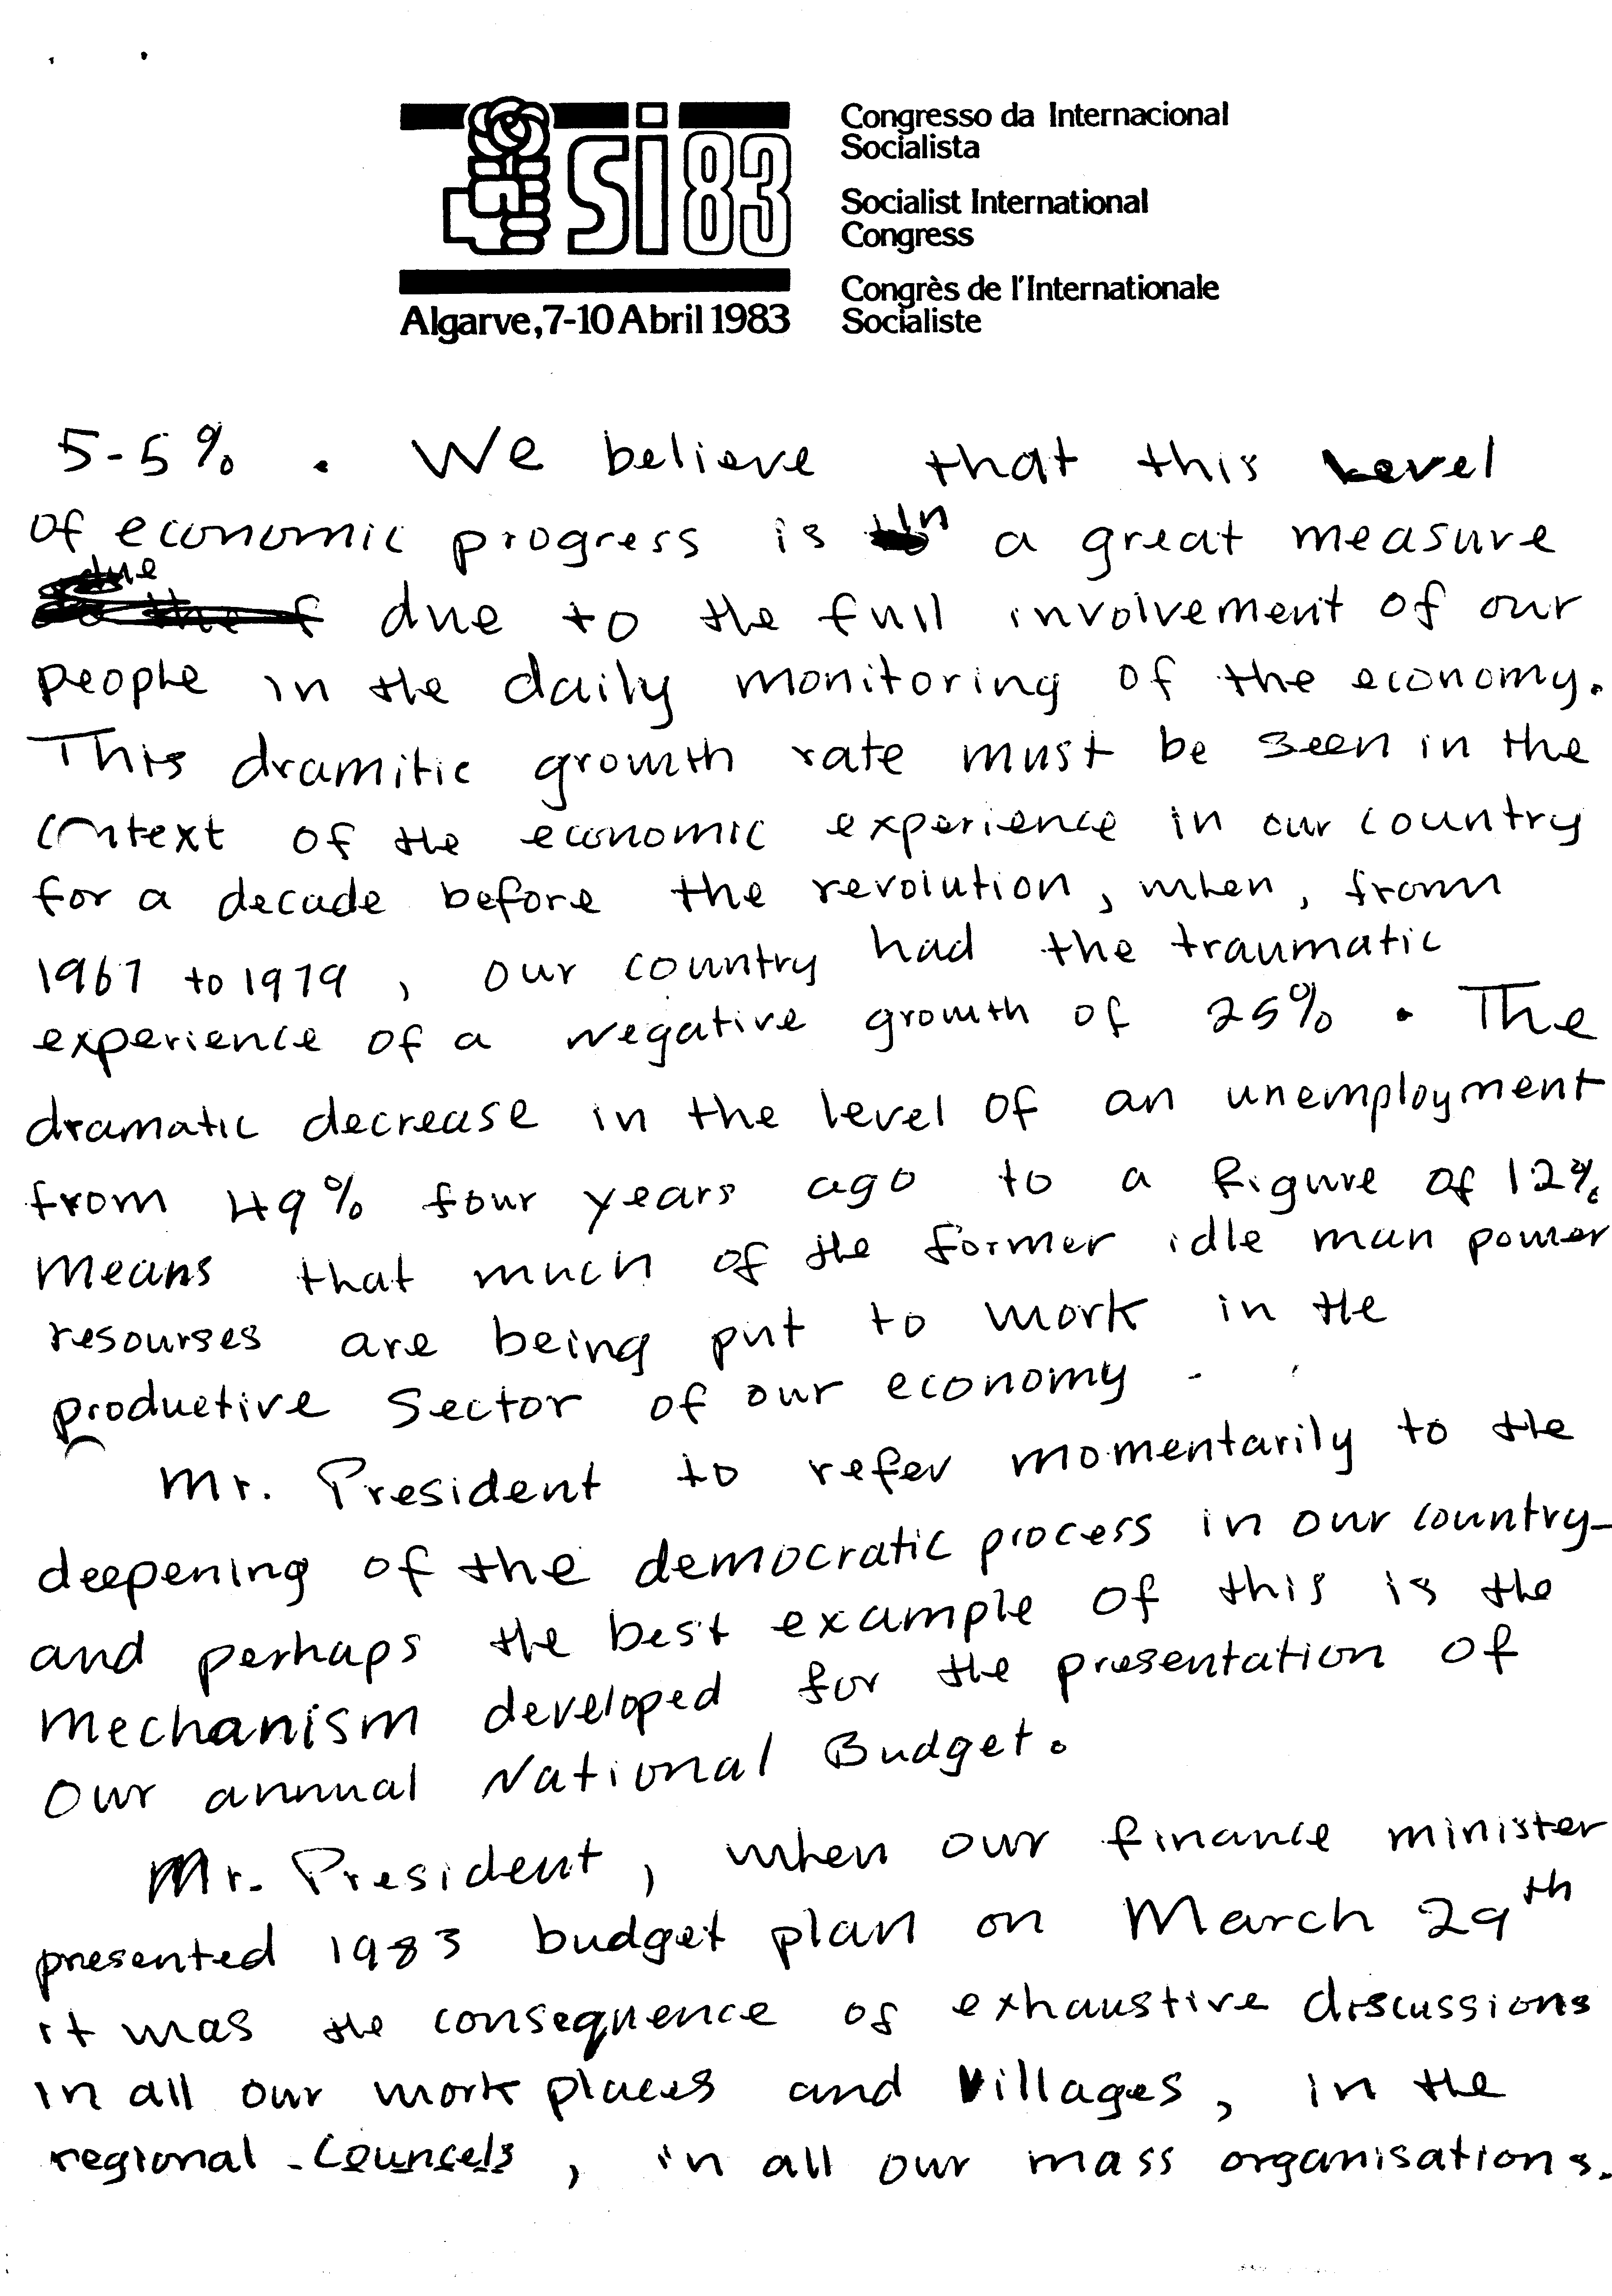 si 83
Algarve, 7-10 Abril 1983
Congresso da Internacional
Socialista
Socialist International
Congress
Congrès de l'Internationale
Socialiste
5-5%. We believe that this Level
of economic progress is in a great measure
due
due to the full involvement of our
people in the daily monitoring of the economy.
This dramitic growth rate must be seen in the
context of the economic experience in our country
for a decade before the revolution, when, from
1967 to 1979, our country had the traumatic
experience of a negative growth of 25%. The
dramatic decrease in the level of an unemployment
from 49% four years ago to a figure of 12%
means that much of the former idle man power
resourses are being put to work in the
productive sector of our economy.
Mr. President to refer momentarily to the
deepening of the democratic process in our country-
and perhaps the best example of this is the
mechanism developed for the presentation of
our annual National Budget.
Mr. President, when our finance minister
presented 1983 budget plan on March 29th
it was the consequence of exhaustive discussions
in all our work places and villages, in the
regional councels, in all our mass organisations.